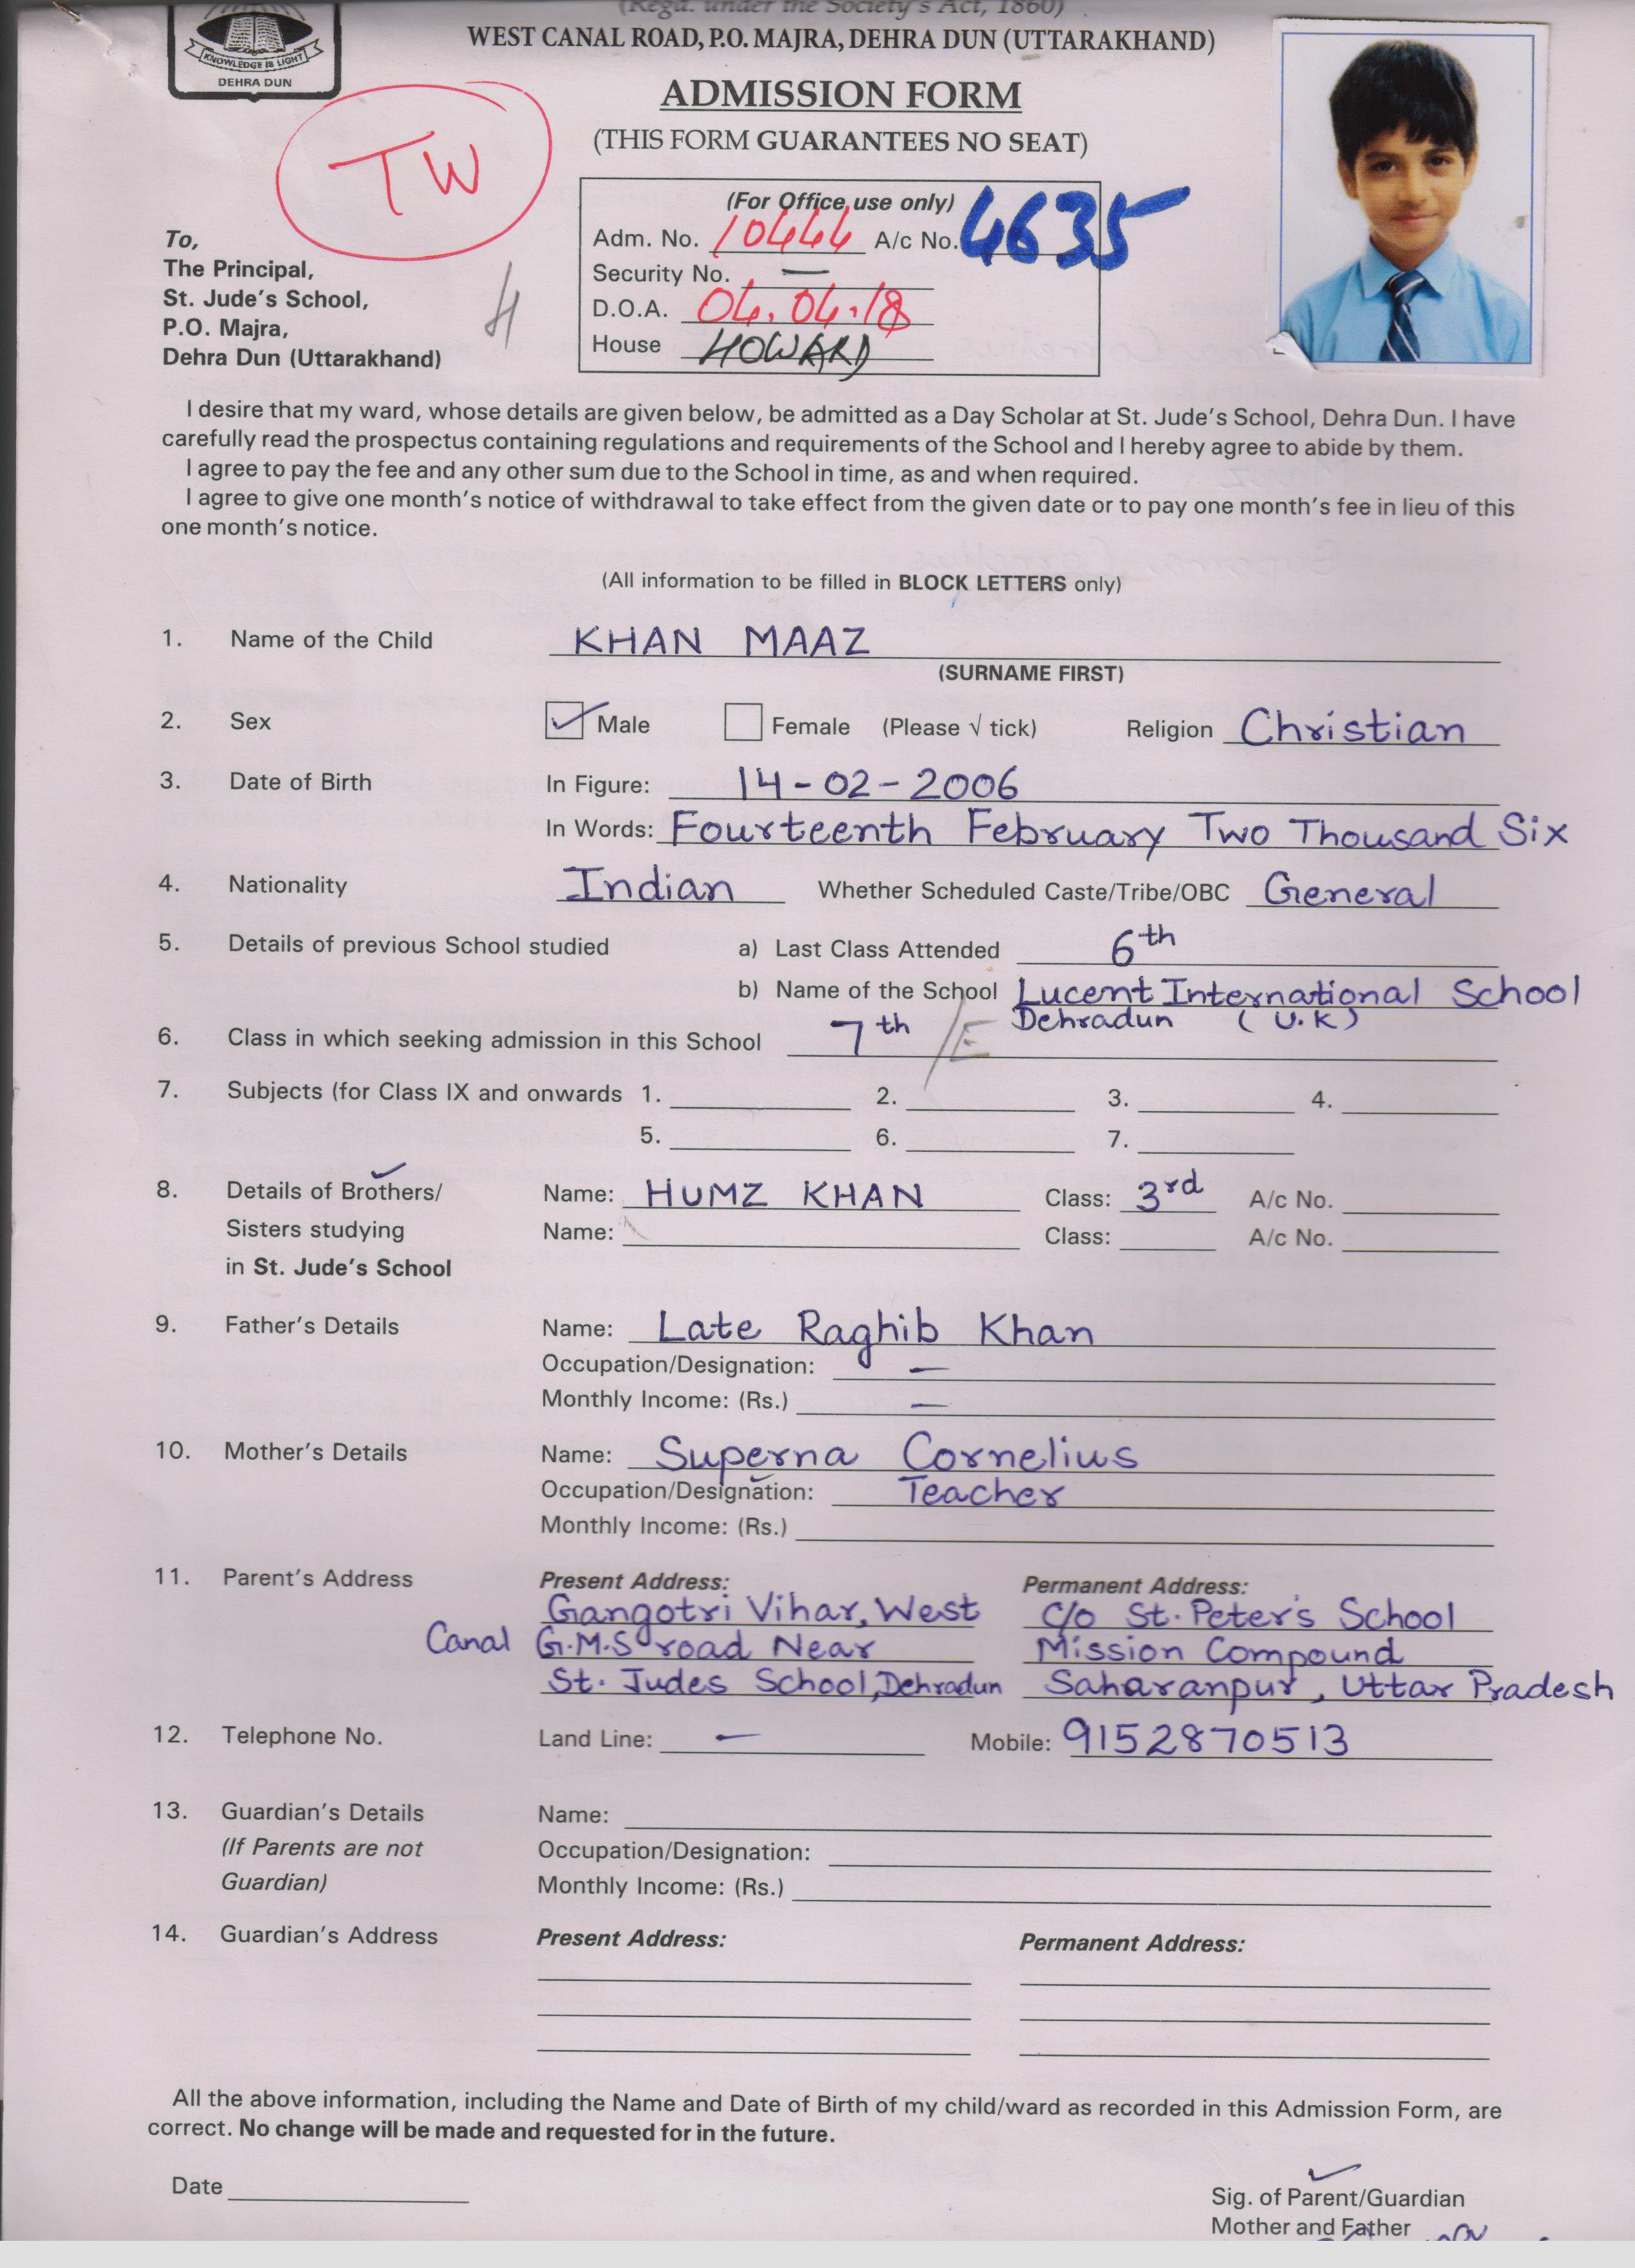 (Regd. under the Society's Act, 1860)
WEST CANAL ROAD, P.O. MAJRA, DEHRA DUN (UTTARAKHAND)
KNOWLEDGE IS LIGHT
DEHRA DUN
ADMISSION FORM
(THIS FORM GUARANTEES NO SEAT)
TW
(For Office use only)
Adm. No. 10444 A/c No. 4635
Security No. —
D.O.A. 04.04.18
House HOWARD
To,
The Principal,
St. Jude's School,
P.O. Majra,
Dehra Dun (Uttarakhand)
H
I desire that my ward, whose details are given below, be admitted as a Day Scholar at St. Jude's School, Dehra Dun. I have
carefully read the prospectus containing regulations and requirements of the School and I hereby agree to abide by them.
I agree to pay the fee and any other sum due to the School in time, as and when required.
I agree to give one month's notice of withdrawal to take effect from the given date or to pay one month's fee in lieu of this
one month's notice.
(All information to be filled in BLOCK LETTERS only)
1. Name of the Child KHAN MAAZ
(SURNAME FIRST)
2. Sex Male Female (Please √ tick) Religion Christian
3. Date of Birth In Figure: 14-02-2006
In Words: Fourteenth February Two Thousand Six
4. Nationality Indian Whether Scheduled Caste/Tribe/OBC General
5. Details of previous School studied a) Last Class Attended 6th
b) Name of the School Lucent International School
Dehradun (U.K)
6. Class in which seeking admission in this School 7th /E
7. Subjects (for Class IX and onwards 1. 2. 3. 4.
5. 6. 7.
8. Details of Brothers/ Name: HUMZ KHAN Class: 3rd A/c No.
Sisters studying Name: Class: A/c No.
in St. Jude's School
9. Father's Details Name: Late Raghib Khan
Occupation/Designation: —
Monthly Income: (Rs.) —
10. Mother's Details Name: Superna Cornelius
Occupation/Designation: Teacher
Monthly Income: (Rs.)
11. Parent's Address Present Address: Permanent Address:
Gangotri Vihar, West C/o St. Peter's School
Canal G.M.S road Near Mission Compound
St. Judes School, Dehradun Saharanpur, Uttar Pradesh
12. Telephone No. Land Line: — Mobile: 9152870513
13. Guardian's Details Name:
(If Parents are not Occupation/Designation:
Guardian) Monthly Income: (Rs.)
14. Guardian's Address Present Address: Permanent Address:
All the above information, including the Name and Date of Birth of my child/ward as recorded in this Admission Form, are
correct. No change will be made and requested for in the future.
Date
Sig. of Parent/Guardian
Mother and Father